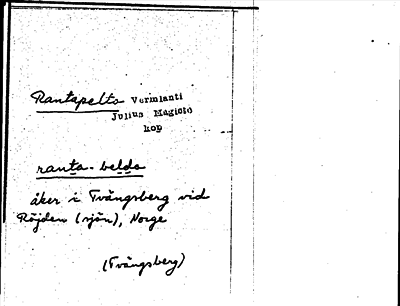 Rantapelto Vermlanti
Julius Mägiste
kop
ranta-beldo
åker i Tvängsberg vid
Röjden (sjön), Norge
(Tvängsberg)